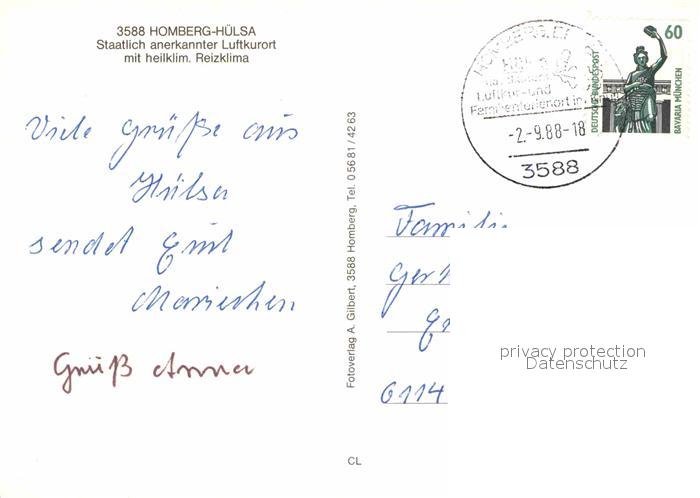 3588 HOMBERG-HÜLSA
Staatlich anerkannter Luftkurort
mit heilklim. Reizklima
Viele Grüße aus
Hülsa
sendet Euch
Mariechen
Gruß Anna
Fotoverlag A. Gilbert, 3588 Homberg, Tel. 0 56 81 / 42 63
CL
HOMBERG, EF
Luftkur- und
Familienferienort in
-2.-9.88-18
3588
60
DEUTSCHE BUNDESPOST
BAVARIA MÜNCHEN
Famili
Ger
6114
privacy protection
Datenschutz